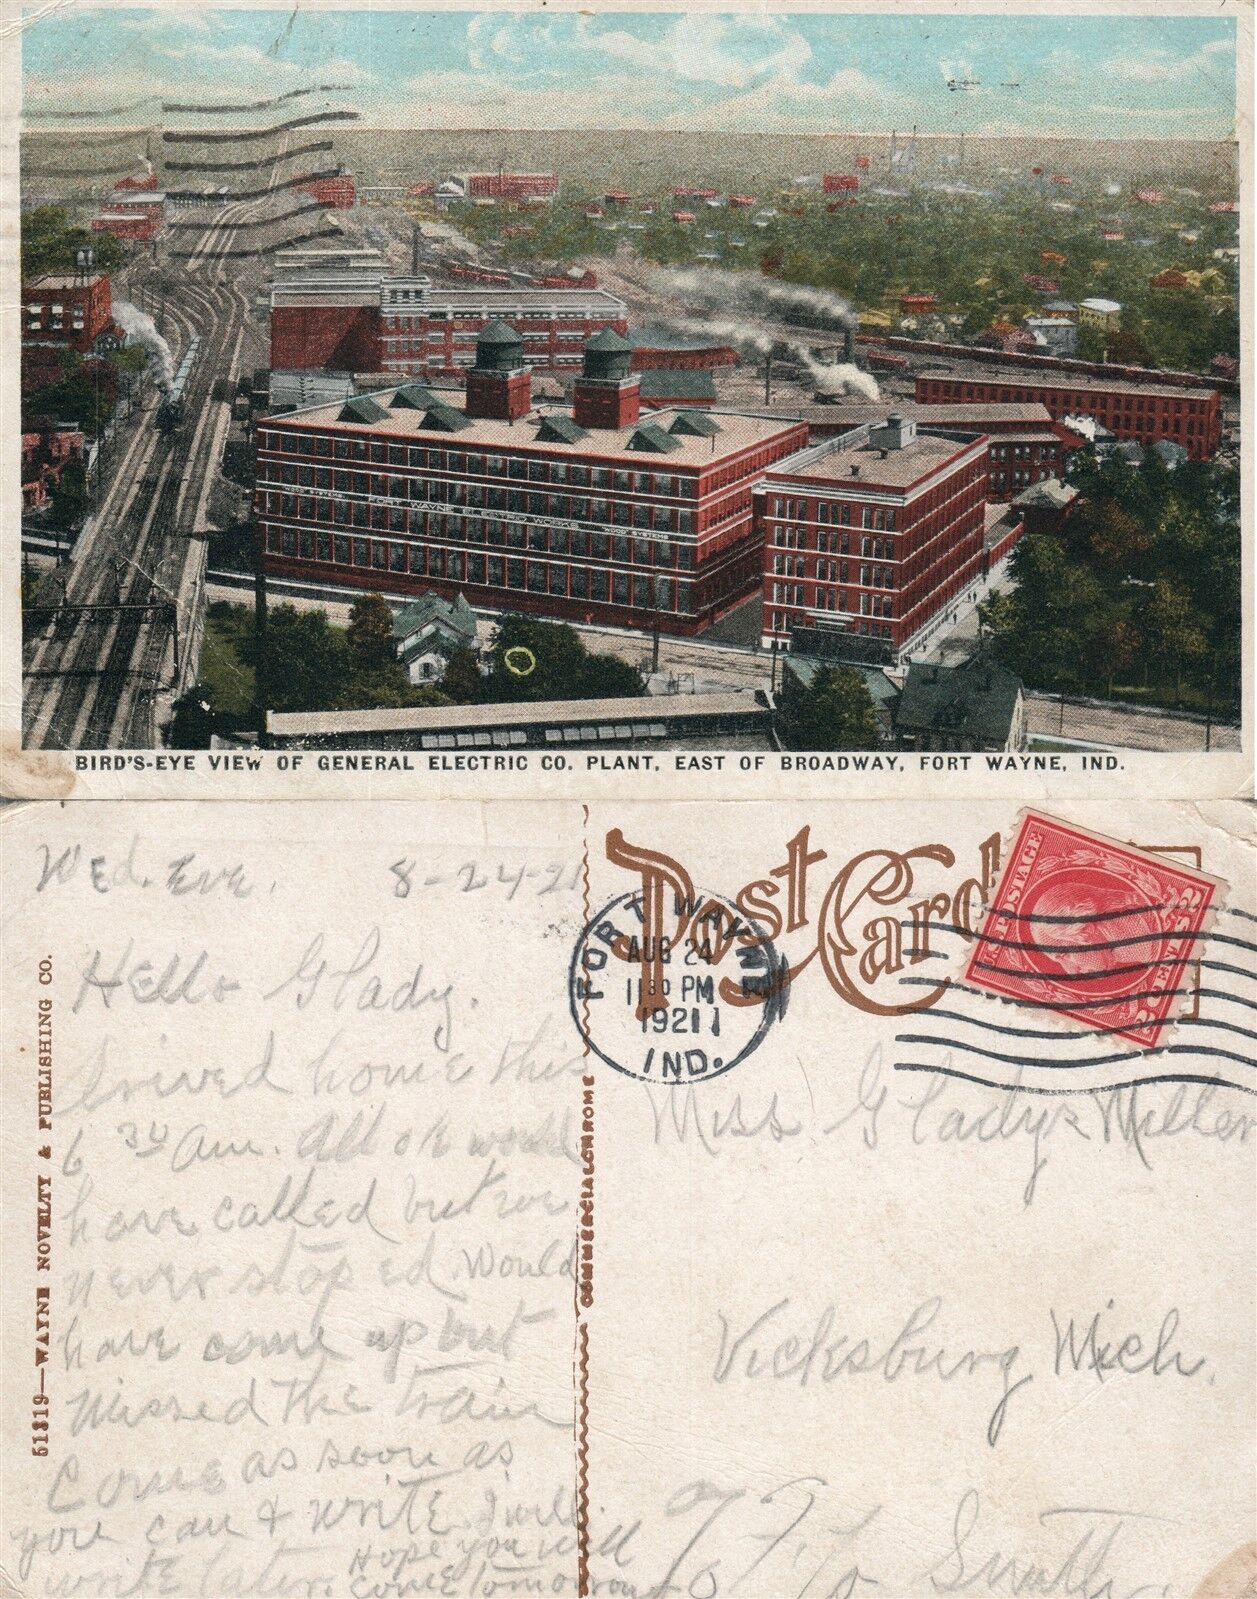 WOOD SYSTEMS FORT WAYNE ELECTRIC WORKS WOOD SYSTEMS
BIRD'S-EYE VIEW OF GENERAL ELECTRIC CO. PLANT, EAST OF BROADWAY, FORT WAYNE, IND.
Wed. Eve. 8-24-21
Hello Gladys.
Arived home this
6 34 Am. All ok would
have called but we
never stoped. Would
have come up but
missed the train
Come as soon as
you can & write. I will
write later. Hope you will
come tomorrow
51319—WAYNE NOVELTY & PUBLISHING CO.
COMMERCIALCHROME
Post Card
FORT WAYNE
AUG 24
11 30 PM
1921
IND.
U.S. POSTAGE
2 CENTS 2
Miss Gladys Miller
Vicksburg Mich.